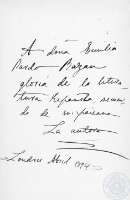 A doña Emilia
Pardo Bazan
gloria de la litera-
tura española
de
La autora
Londres Abril 1894